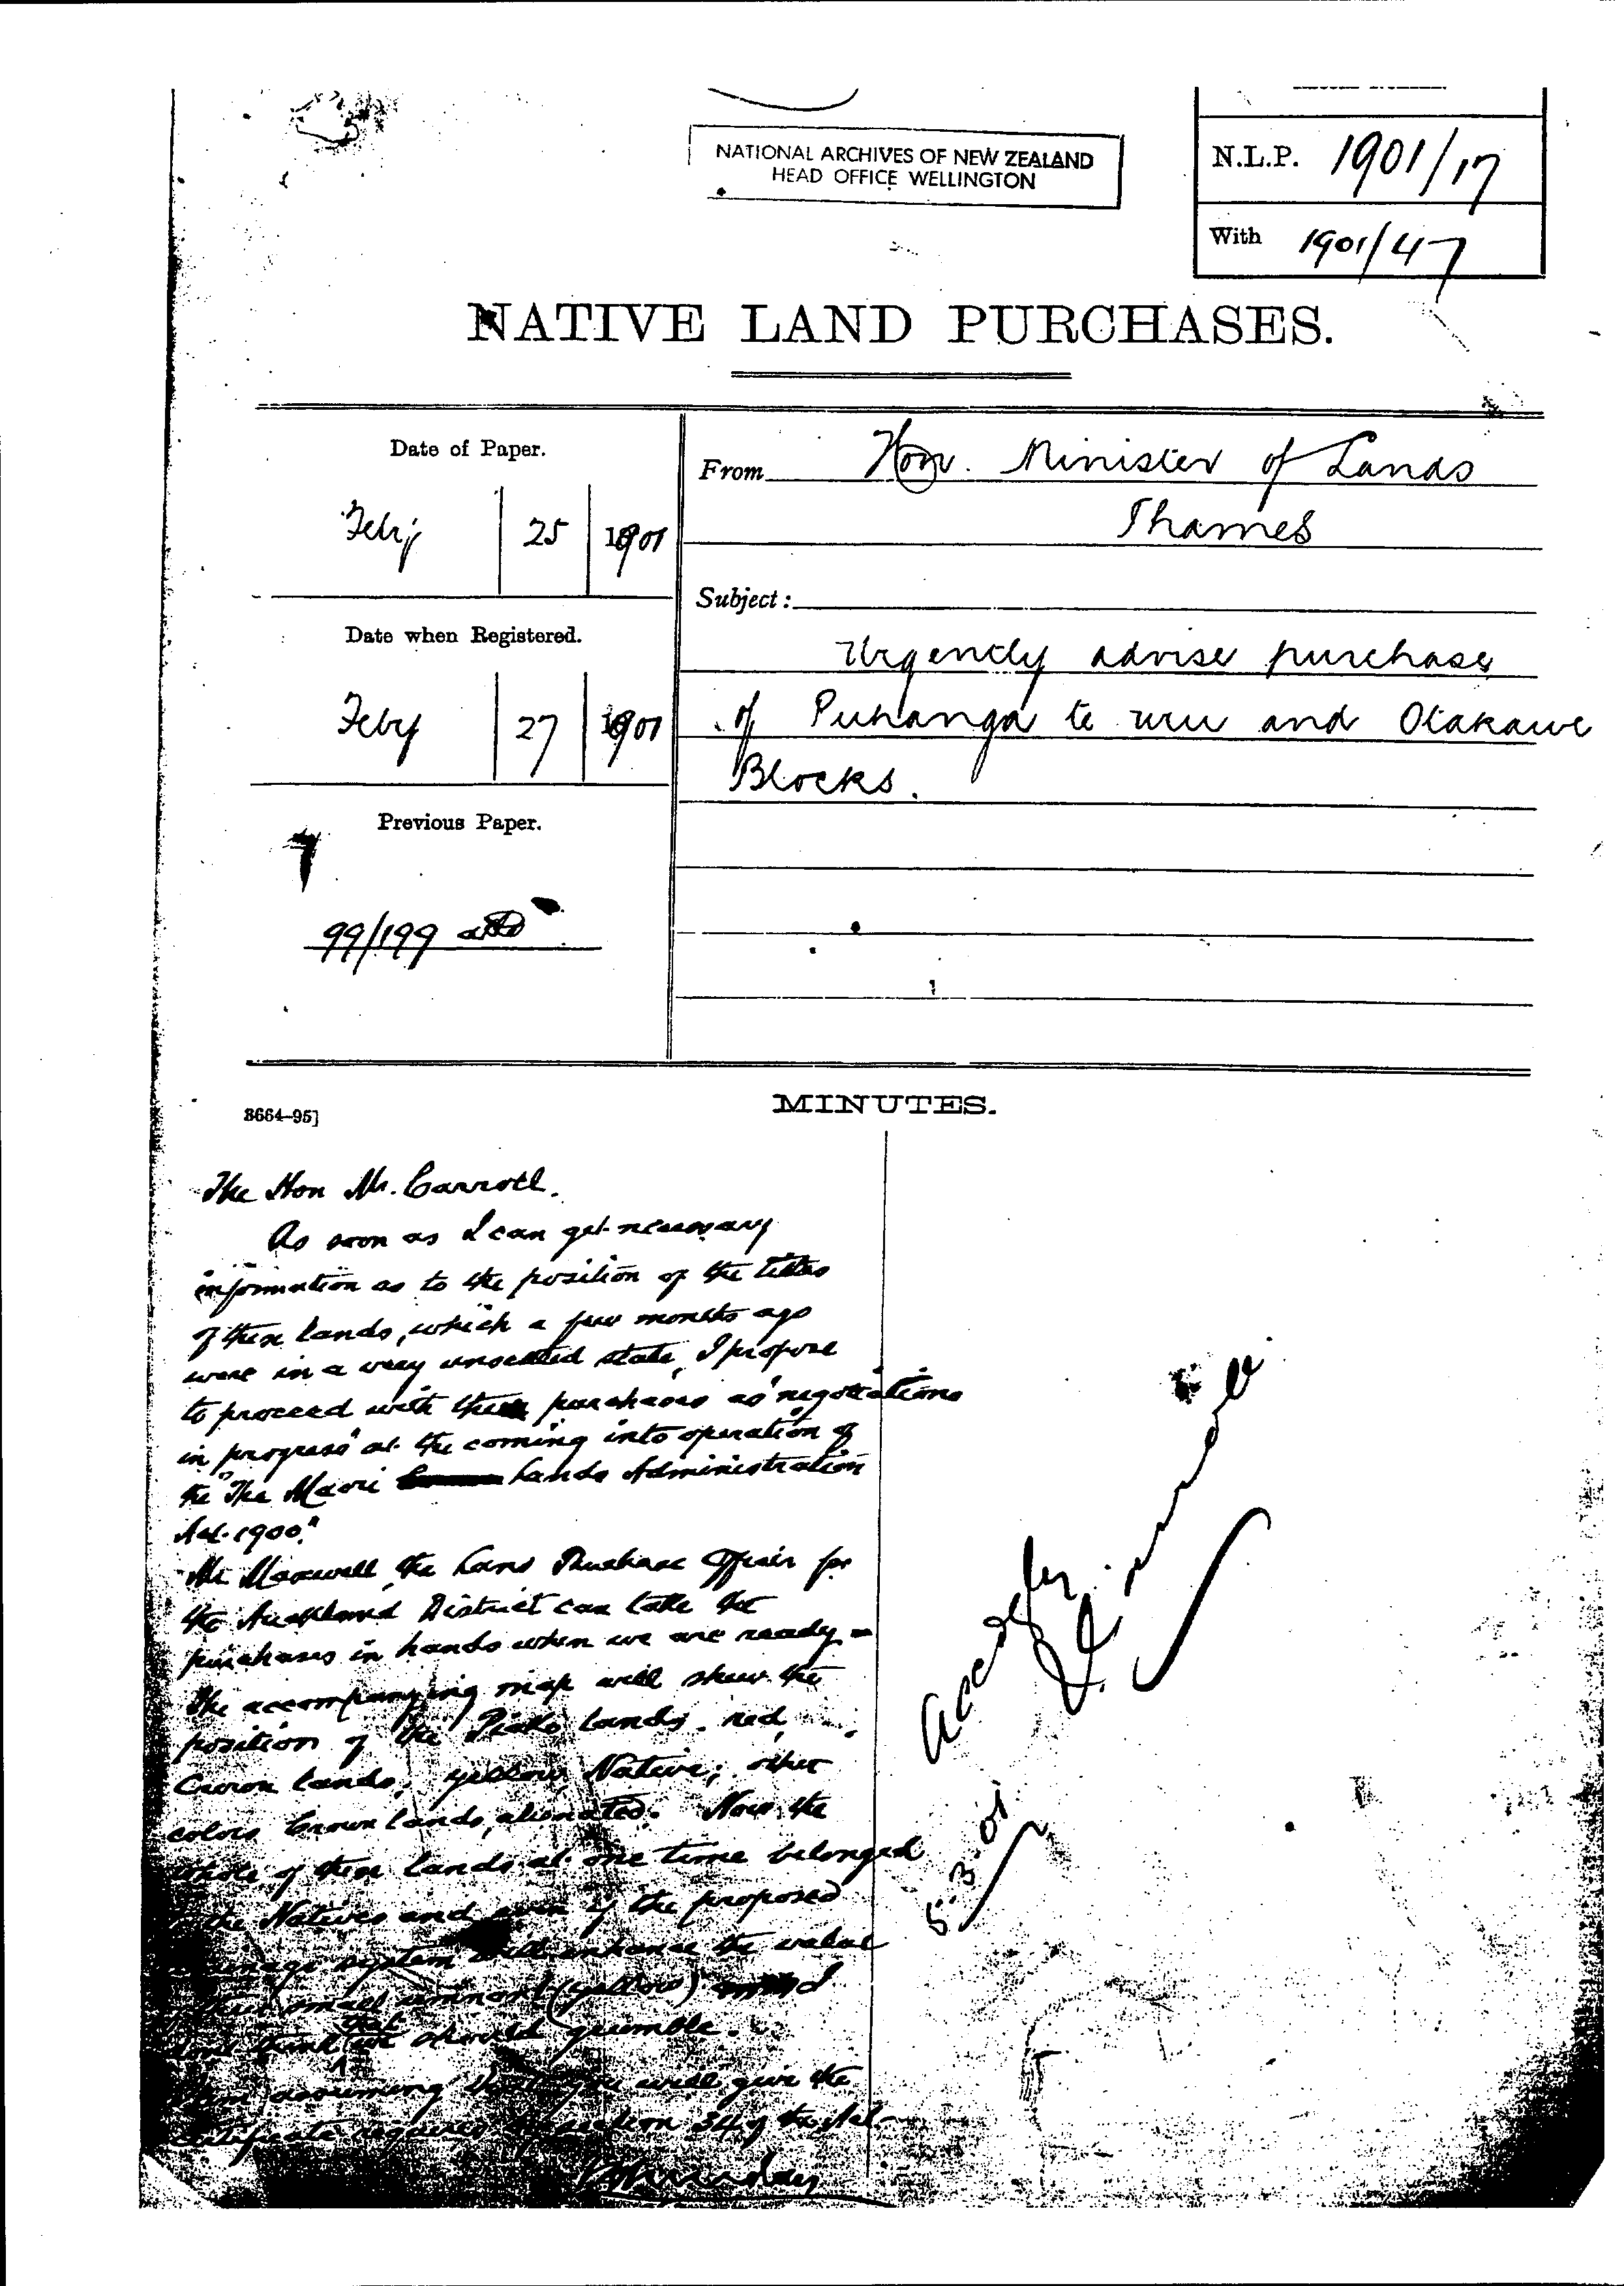 NATIONAL ARCHIVES OF NEW ZEALAND
HEAD OFFICE WELLINGTON
N.L.P. 1901/17
With 1901/47
NATIVE LAND PURCHASES.
Date of Paper.
Feby 25 1901
Date when Registered.
Feby 27 1901
Previous Paper.
99/199
From Hon. Minister of Lands
Thames
Subject:
Urgently advise purchase
of Puhanga te uru and Otakawe
Blocks.
3664–95]
MINUTES.
The Hon Mr. Carroll.
As soon as I can get necessary
information as to the position of the titles
of these lands, which a few months ago
were in a very unsettled state, I propose
to proceed with these purchases as "negotiations
in progress" at the coming into operation of
the "The Maori Lands Administration
Act 1900."
Mr Maxwell the Land Purchase Officer for
the Auckland District can take the
purchases in hands when we are ready –
The accompanying map will shew the
position of the Piako lands, red,
Crown lands; yellow, Native; other
colors Crown lands, alienated. Now the
whole of these lands at one time belonged
the Natives and even if the proposed
system will enhance the value
small remnant (yellow) I
think that should grumble.
assuming that you will give the
certificate required by section 34 of the Act
5.3.01